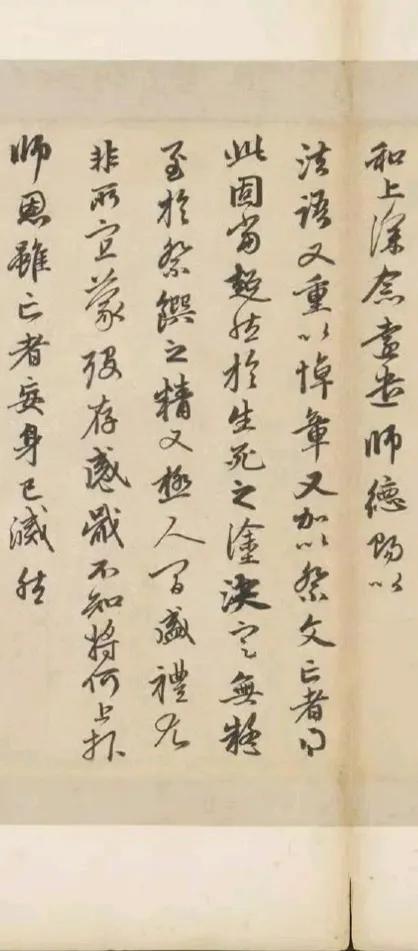 和上深念師德賜以
法語又重以悼章又加以祭文亡者得
此固當超然於生死之塗決定無疑
至於祭饌之精又極人間盛禮尤
非所宜蒙歿存感戴不知將何上報
師恩雖亡者妄身已滅然